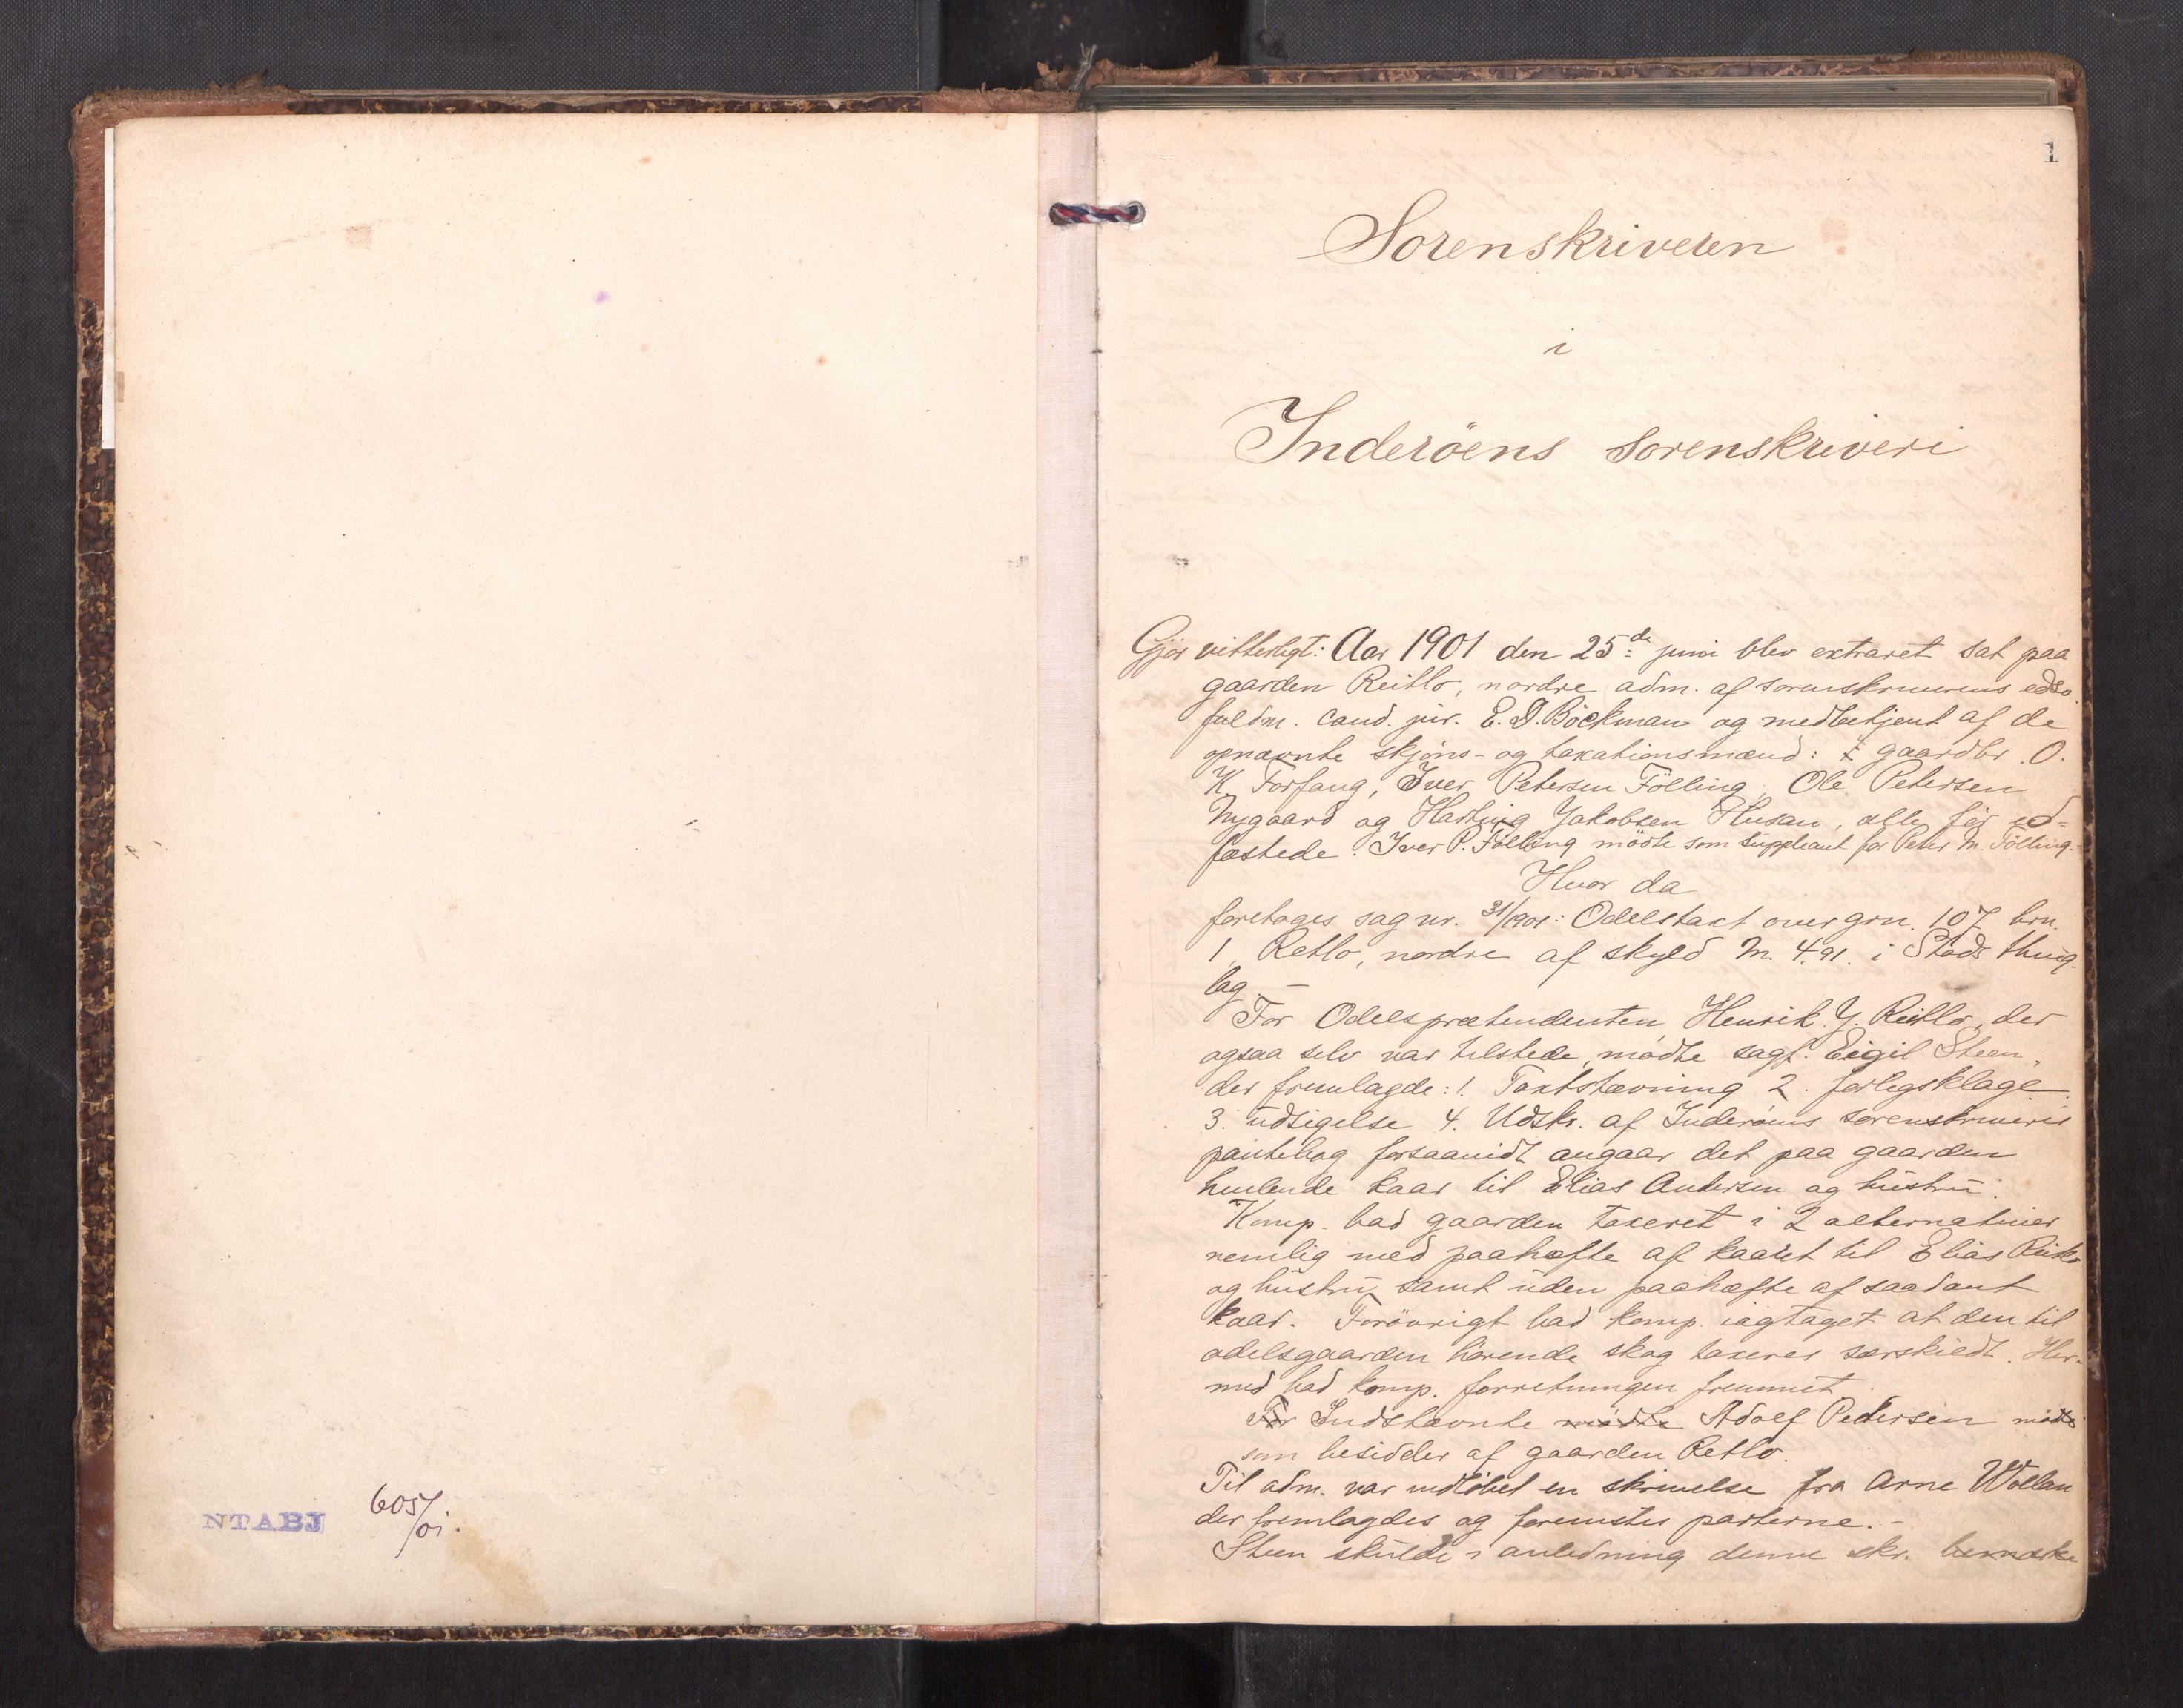 NTABJ 605/01.
1
Sorenskriveren
i
Inderöens Sorenskriveri
Gjör vitterligt: Aar 1901 den 25de juni blev extraret sat paa
gaarden Reitlo, nordre adm. af sorenskriverens edso.
fuldm. cand. jur. E. D. Böckman og medbetjent af de
opnævnte skjöns- og taxationsmænd: gaardbr. O.
K. Forfang, Iver Petersen Fölling, Ole Petersen
Nygaard og Hartvig Jakobsen Husan, alle för ed-
fæstede. Iver P. Fölling mödte som suppleant for Peter M. Fölling.
Hvor da
foretoges sag nr. 31/1901: Odelstaxt over grn. 107 brn.
1, Retlo, nordre af skyld M. 4.91. i Stods thing-
lag. –
For Odelsprætendenten Henrik J. Reitlo, der
ogsaa selv var tilstede, mödte sagf. Eigil Steen,
der fremlagde: 1. Taxtstævning 2. forligsklage
3. udsigelse 4. Udskr. af Inderöens sorenskriveris
pantebog forsaavidt angaar det paa gaarden
hvilende kaar til Elias Andersen og hüstrü.
Komp. bad gaarden taxeret i 2 alternativer
nemlig med paahæfte af kaaret til Elias Reitlo
og hüstrü samt uden paahæfte af saadant
kaar. Forövrigt bad komp. iagtaget at den til
odelsgaarden hörende skog taxeres særskildt. Her-
med bad komp. forretningen fremmet
For Indstævnte mödte Adolf Pedersen mödte
som besidder af gaarden Retlo.
Til adm. var indlöbet en skrivelse fra Arne Wollan
der fremlagdes og foreviste parterne. –
Steen skulde i anledning denne skr. bemærke